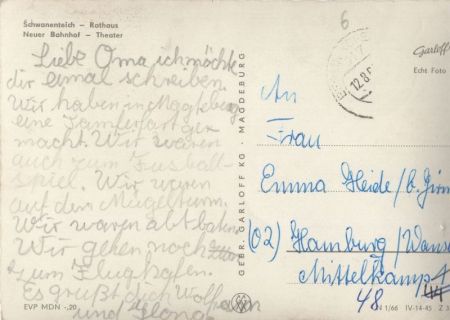 Schwanenteich – Rathaus
Neuer Bahnhof – Theater
Liebe Oma ich möchte
dir einmal schreiben.
Wir haben in Magdeburg
eine Damferfart ge
macht. Wir waren
auch zum Fussball-
spiel. Wir waren
auf dem
Wir waren alt baden
Wir gehen noch
zum Flughafen.
Es grüßt dich Wolfram
und
EVP MDN -.20
GEBR. GARLOFF KG · MAGDEBURG
6
12.8.6
Garloff
Echt Foto
An
Frau
Emma Heide/b.
(02) Hamburg/Wans
Mittelkamp 44
48
N 1/66 IV-14-45 Z 3